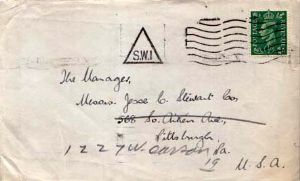 S.W.1
POSTAGE REVENUE
The Manager,
Messrs. Jesse C. Stewart Co.
568 So. Aiken Ave,
Pittsburgh
1227 W. Carson Pa.
19
U.S.A.